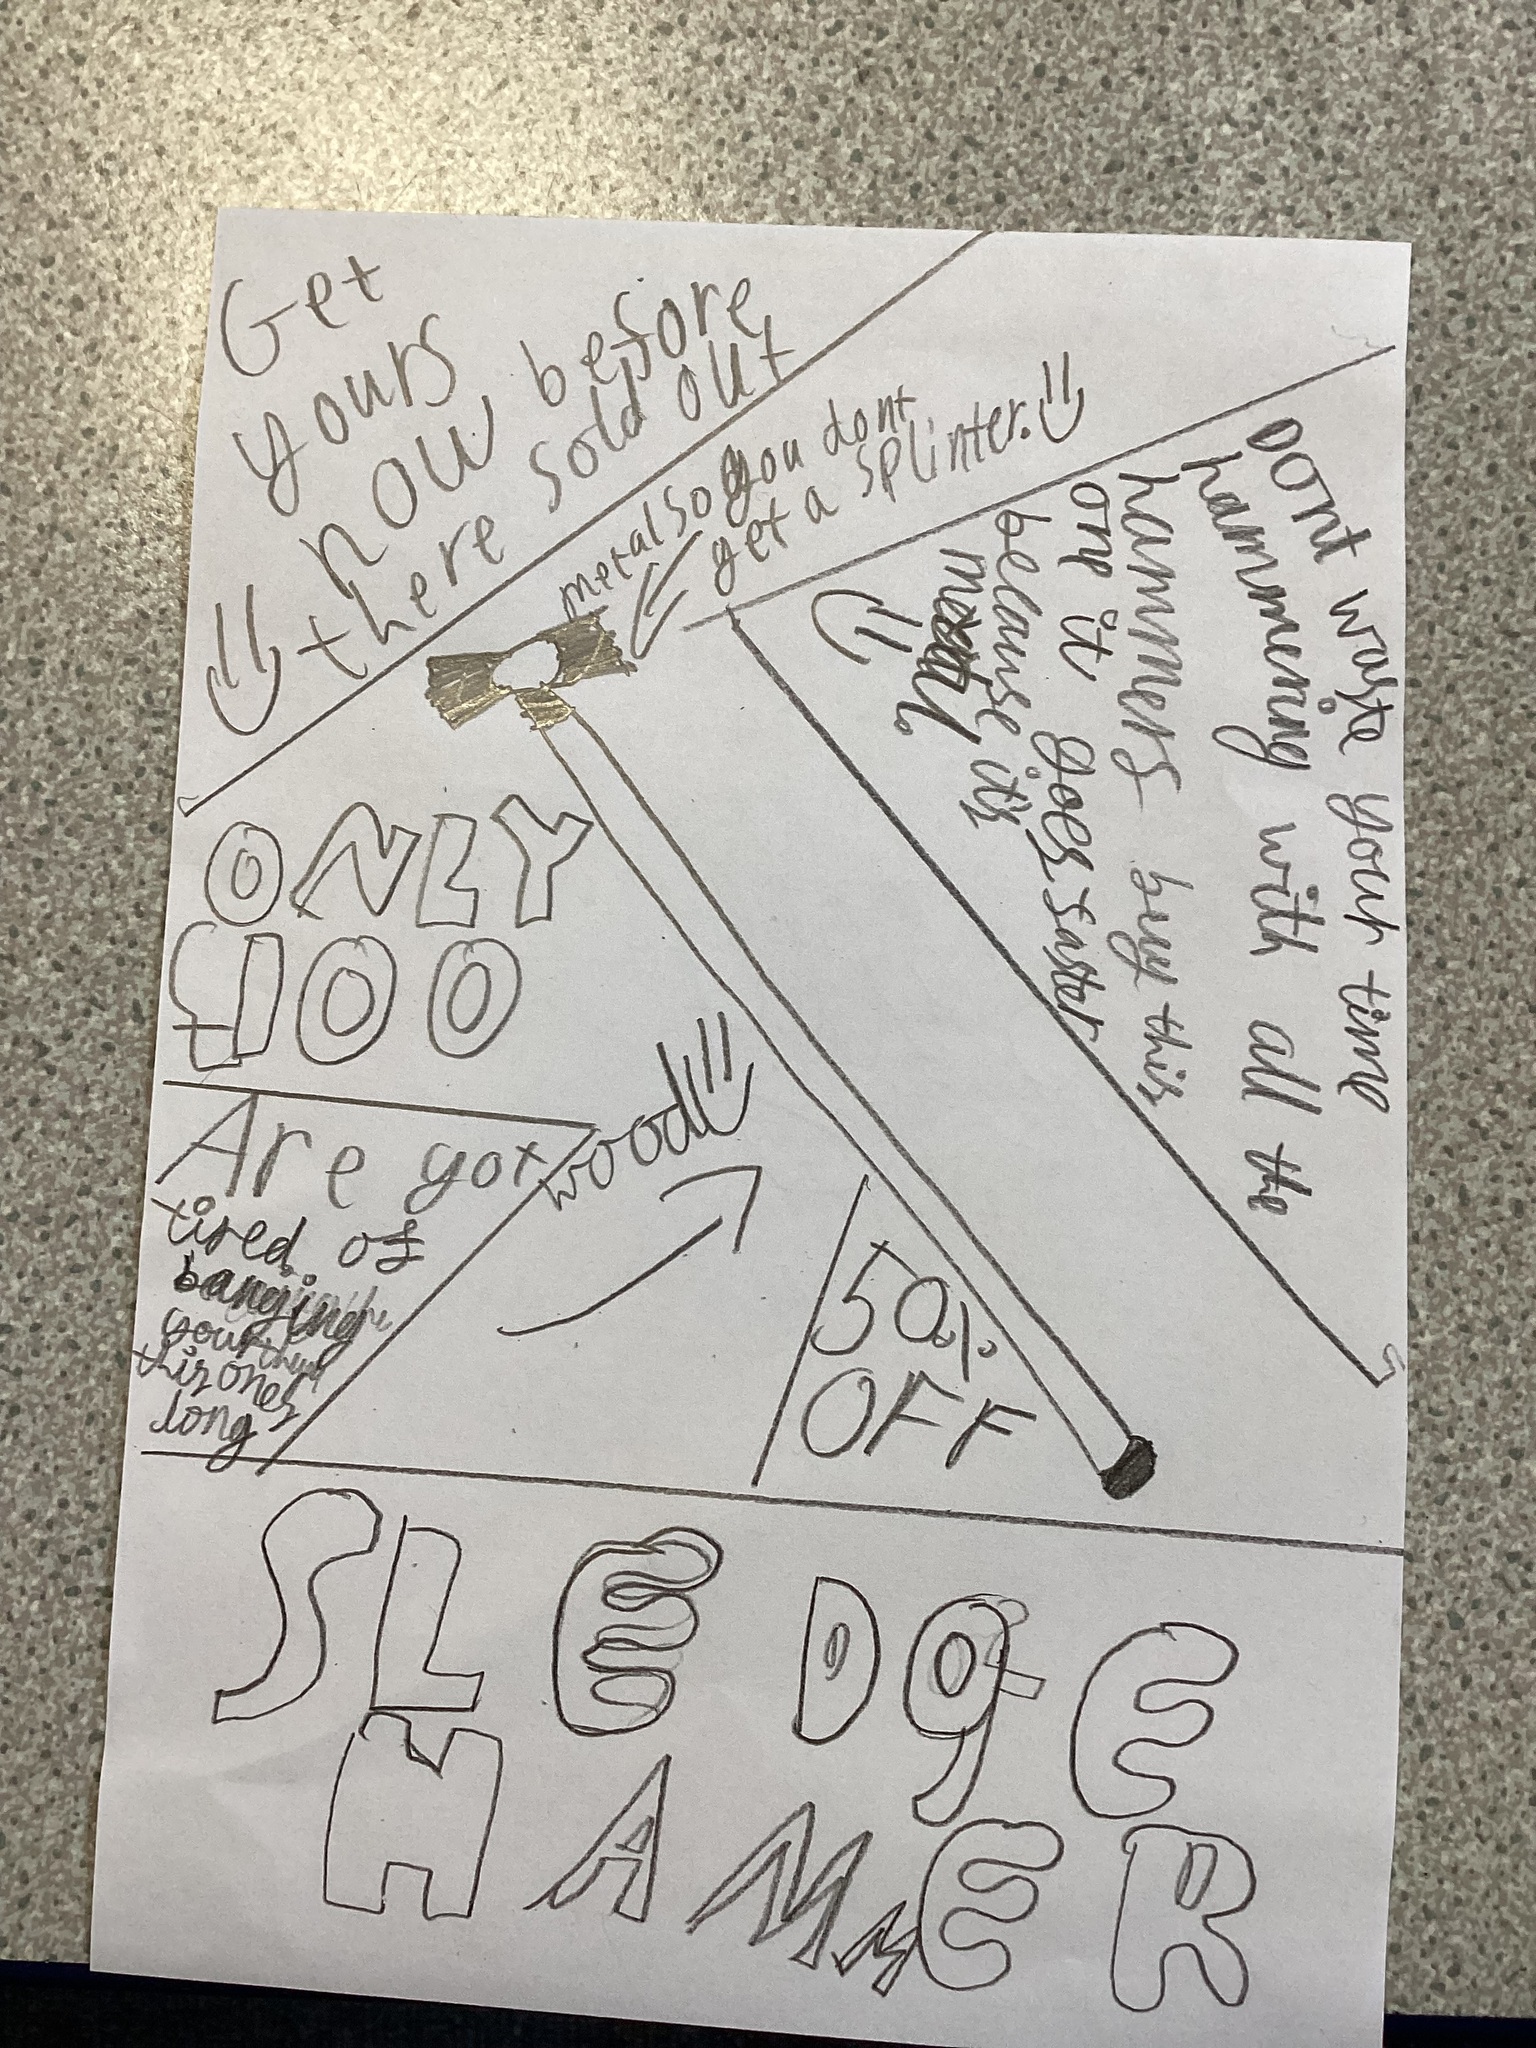 Get
yours
now before
there sold out
metal so you dont
get a splinter.
Dont waste your time
hammering with all the
hammers buy this
one it goes faster
because it's
metal.
ONLY
£100
Are got
tired of
banging
your
this ones
long
wood
50%
OFF
SLEDGE
HAMMER